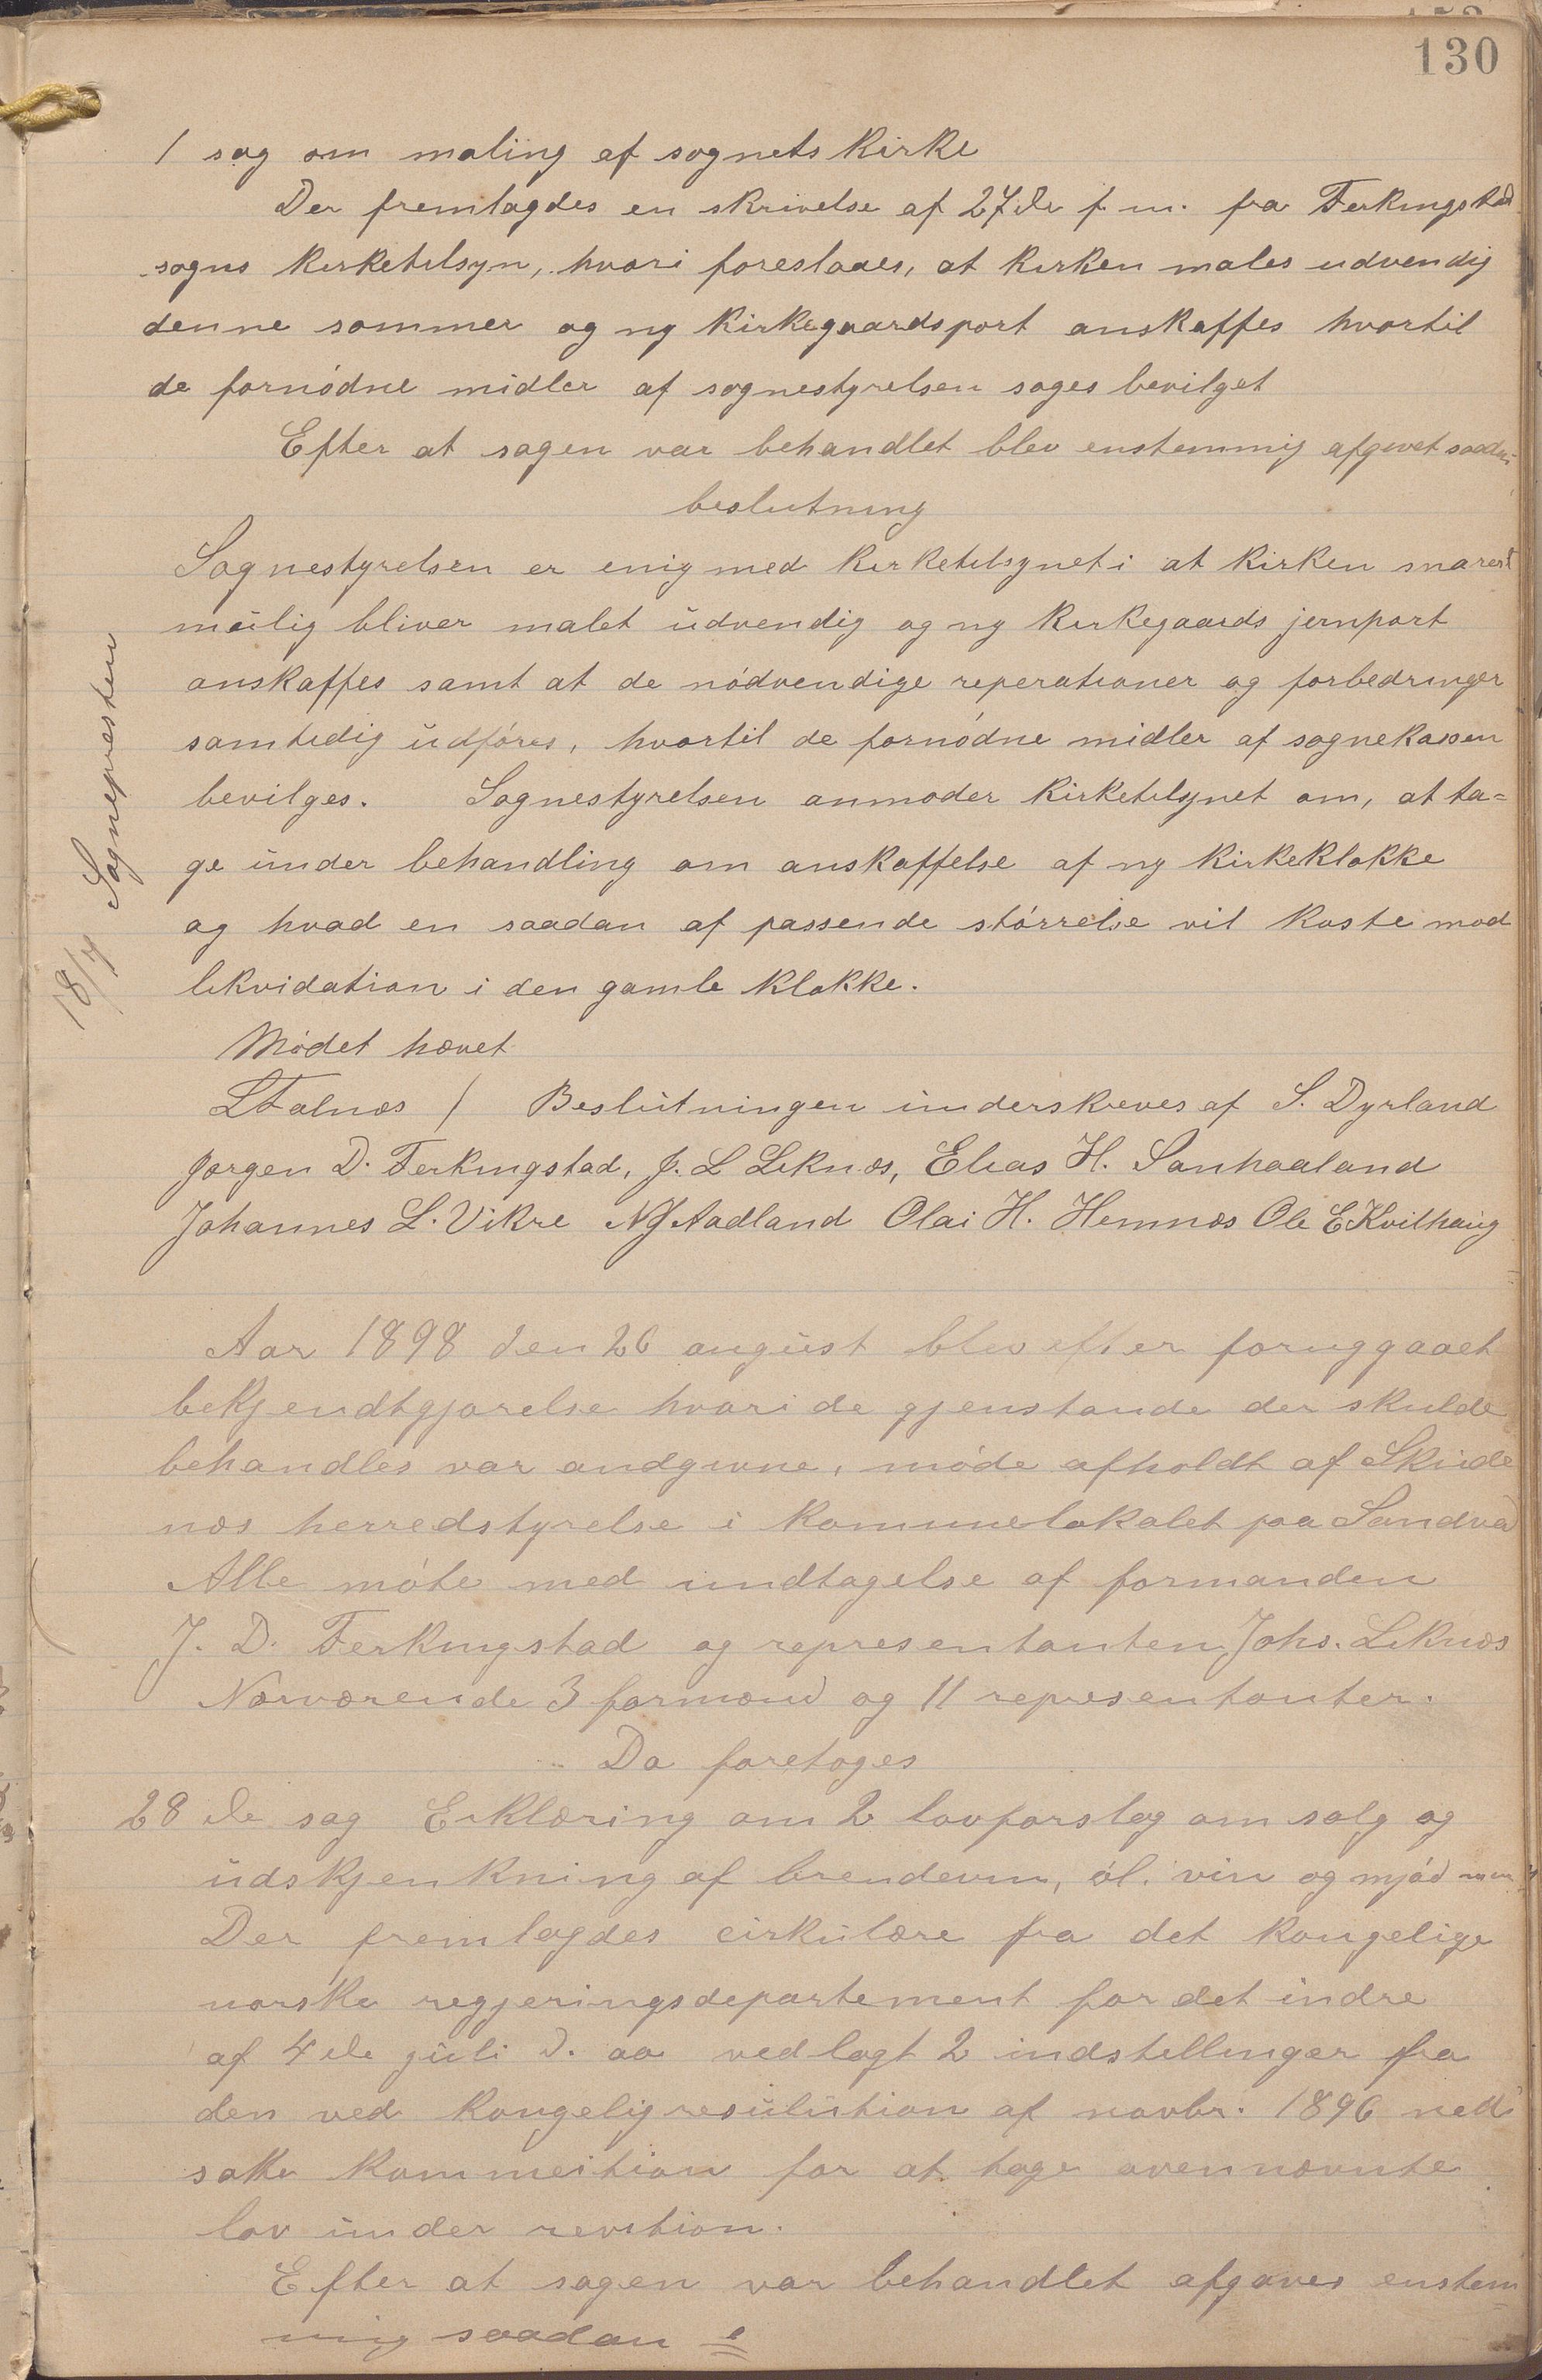 130
1 sag om maling af sognets Kirke
Der fremlagdes en skrivelse af 27de f. m. fra Ferkingstad
sogns Kirketilsyn, hvori foreslaaes, at Kirken males udvendig
denne sommer og ny Kirkegaardsport anskaffes hvortil
de fornódne midler af sognestyrelsen søges bevilget
Efter at sagen var behandlet blev enstemmig afgivet
beslutning
Sognestyrelsen er enig med Kirketilsynet i at Kirken snarest
mulig bliver malet udvendig og ny Kirkegaards jernport
anskaffes samt at de nódvendige reperationer og forbedringer
samtidig udfóres, hvortil de fornódne midler af sognekassen
bevilges. Sognestyrelsen anmoder Kirketilsynet om, at ta=
ge under behandling om anskaffelse af ny Kirkeklokke
og hvad en saadan af passende stórrelse vil koste mod
likvidation i den gamle Klokke.
18/7 Sognepresten
Módet hævet
L Falnæs / Beslutningen underskreves af S. Dyrland
Jørgen D. Ferkingstad, J. L Liknæs, Elias H. Sanhaaland
Johannes L. Vikre NJ Aadland Olai H. Hemnæs Ole E Kvilhaug
Aar 1898 den 26 august blev efter foruggaaet
bekjendtgjørelse hvori de gjenstande der skulde
behandles var andgivne, móde afholdt af Skude
næs herredstyrelse i Kommunelokalet paa Sandve
Alle móte med undtagelse af formanden
J. D. Ferkingstad og representanten Johs. Liknæs
Nærværende 3 formænd og 11 representanter.
Da foretoges
28 de sag Erklæring om 2 lovforslag om salg og
udskjenkning af brendevin, ól. vin og mjód
Der fremlagdes cirkulære fra det kongelige
norske regjeringsdepartement for det indre
af 4de juli d. aa vedlagt 2 indstillinger fra
den ved kongelig resulution af novbr. 1896 ned
satte Kommeition for at tage ovennævnte
lov under revition.
Efter at sagen var behandlet afgaves enstem
mig saadan